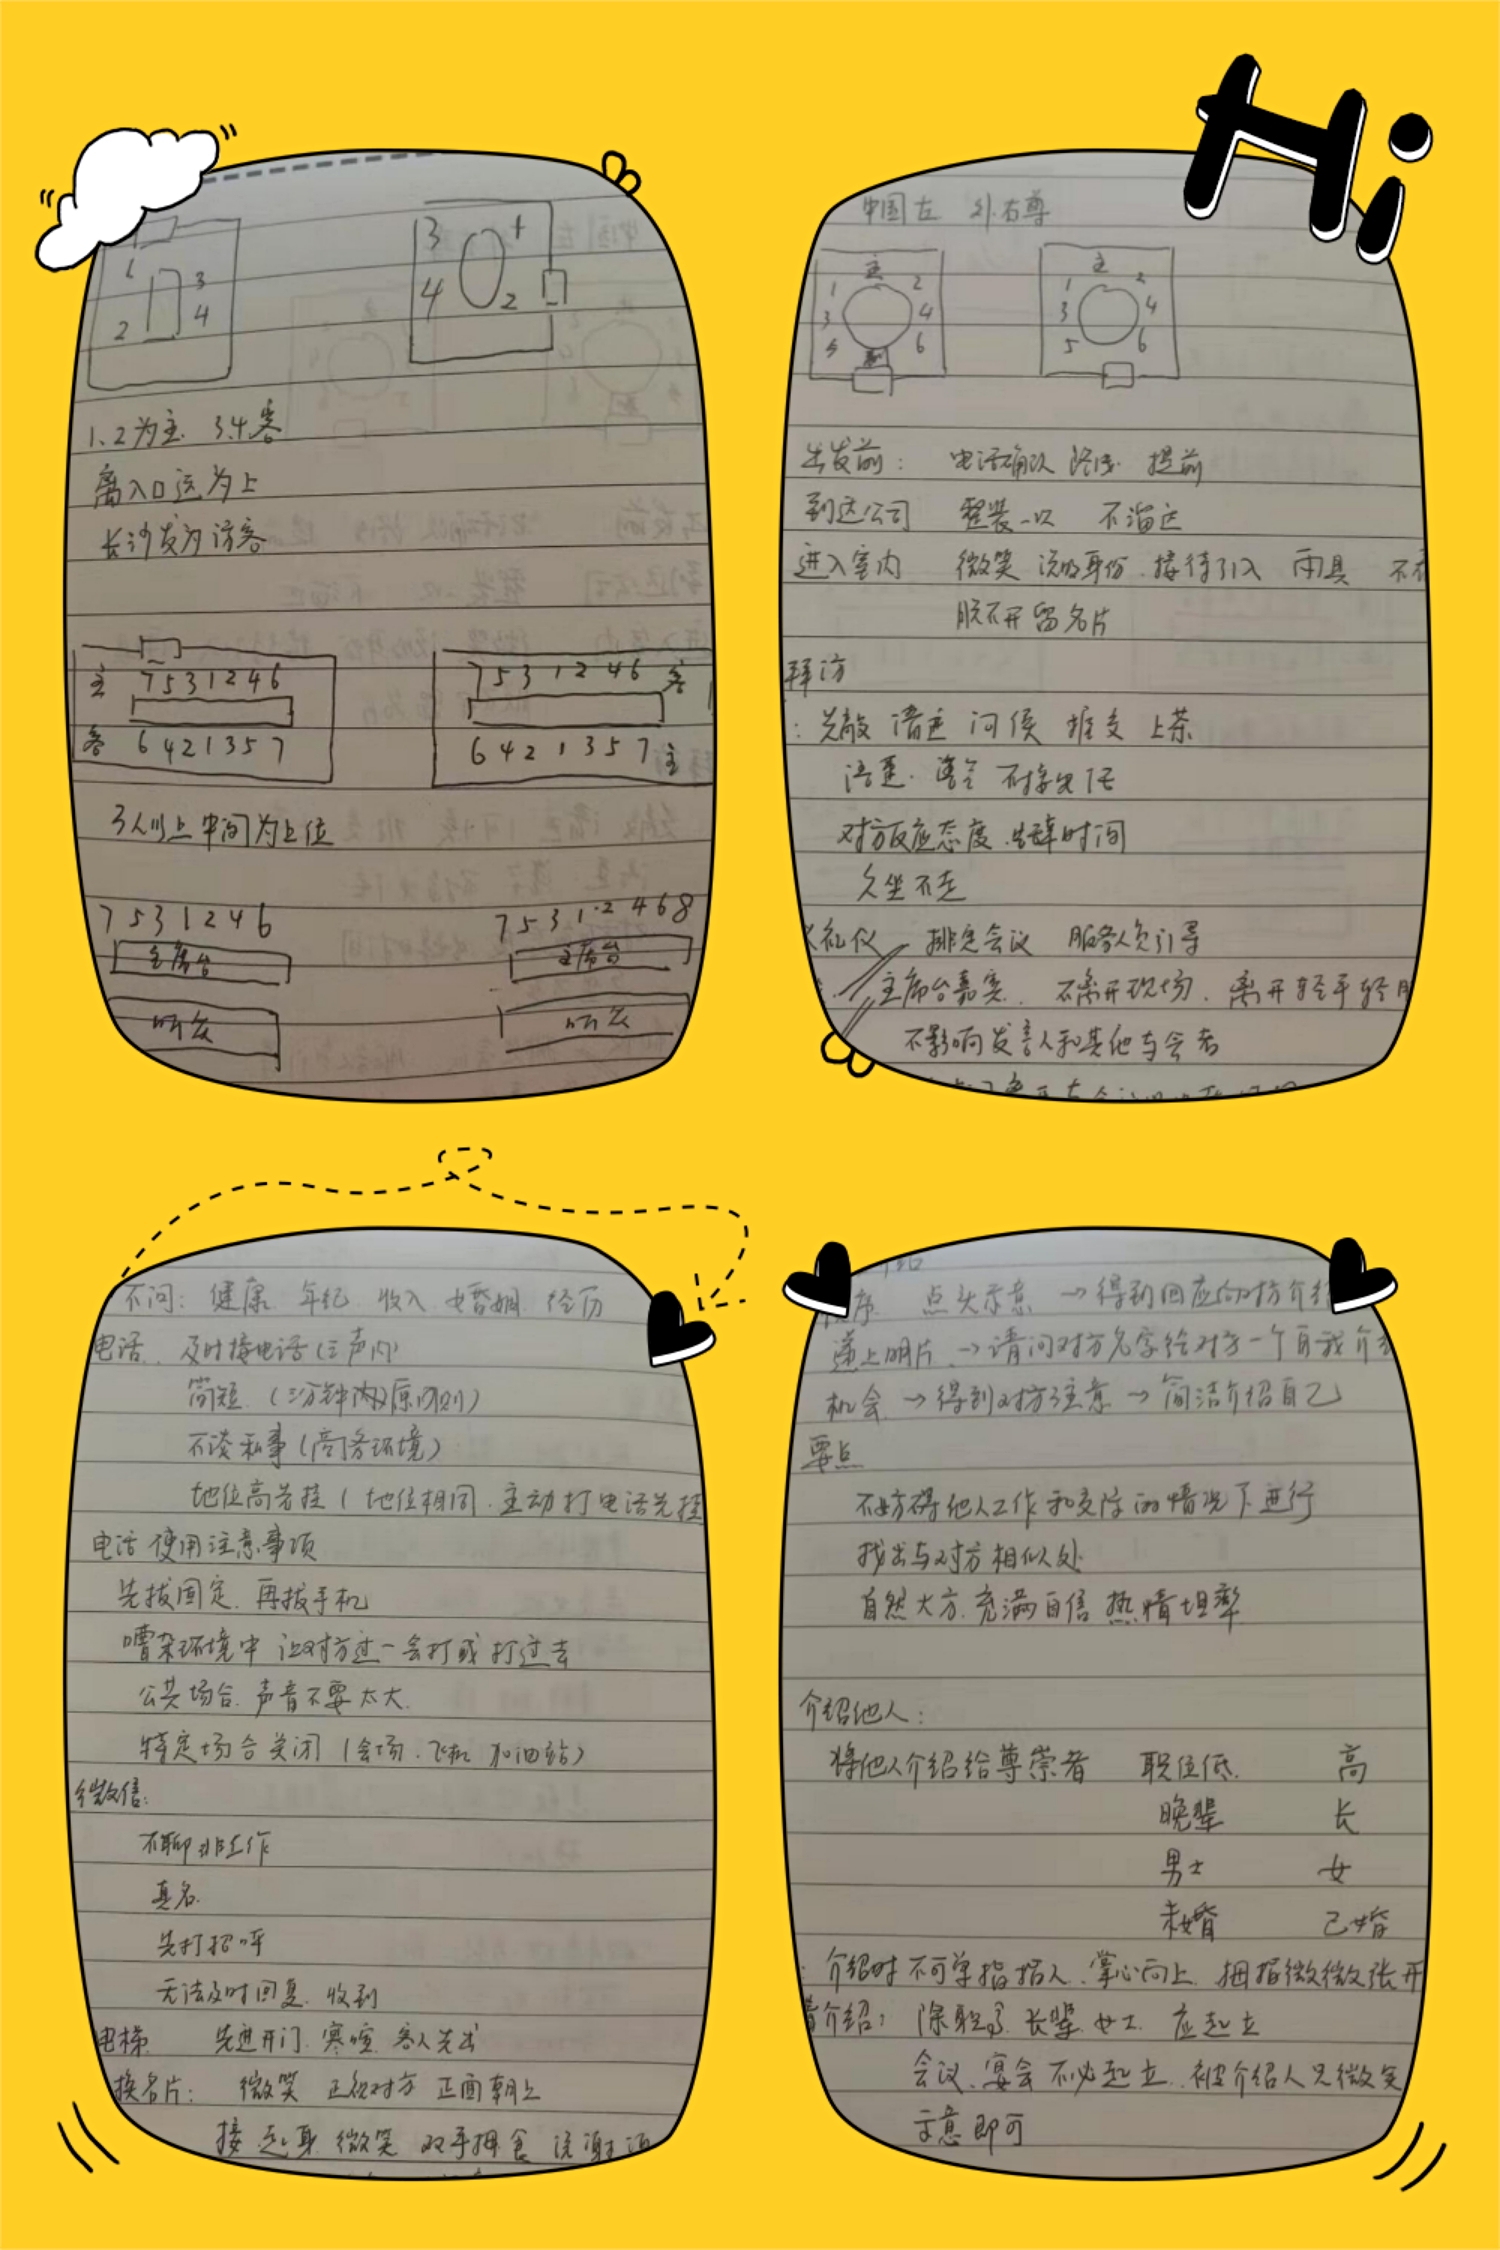 1 3
2 4
3 1
4 2
1.2为主 3.4客
离入口远为上
长沙发为访客
主 7 5 3 1 2 4 6
客 6 4 2 1 3 5 7
7 5 3 1 2 4 6 客
6 4 2 1 3 5 7 主
3人以上中间为上位
7 5 3 1 2 4 6
主席台
听众
7 5 3 1 2 4 6 8
主席台
听众
Hi
中国左 外右尊
主
1 2
3 4
5 6
副
主
1 2
3 4
5 6
出发前: 电话确认 路线 提前
到达公司 整装一次 不溜达
进入室内 微笑 说明身份.接待引入 雨具 不
脱不开留名片
拜访
:先敲 请进 问候 推 上茶
话 不接
对方反应态度.告辞时间
久坐不走
礼仪 排定会议 服务人员引导
主席台嘉宾. 不离开现场. 离开轻手轻脚
不影响发言人和其他与会者
不问: 健康 年纪 收入 婚姻 经历
电话. 及时接电话(三声内)
简短 (三分钟内原则)
不谈私事(商务环境)
地位高者挂( 地位相同.主动打电话先挂
电话使用注意事项
先拔固定.再拔手机
嘈杂环境中 让对方过一会打或打过去
公共场合.声音不要太大.
特定场合关闭(会场.飞机 加油站)
微信:
不聊非工作
真名
先打招呼
无法及时回复.收到
电梯 先进开门.寒喧.客人先出
换名片: 微笑 正视对方 正面朝上
接 起身 微笑 双手拇食 说谢谢
序 点头示意 →得到回应向对方介绍
递上明片.→请问对方名字给对方一个自我介绍
机会 →得到对方注意 →简洁介绍自己
要点
不妨碍他人工作和交际的情况下进行
找出与对方相似处
自然大方.充满自信 热情坦率
介绍他人:
将他人介绍给尊崇者 职位低. 高
晚辈 长
男士 女
未婚 已婚
:介绍时不可单指指人.掌心向上.拇指微微张开
介绍: 除职高.长辈.女士. 应起立
会议、宴会不必起立.被介绍人只微笑
示意即可